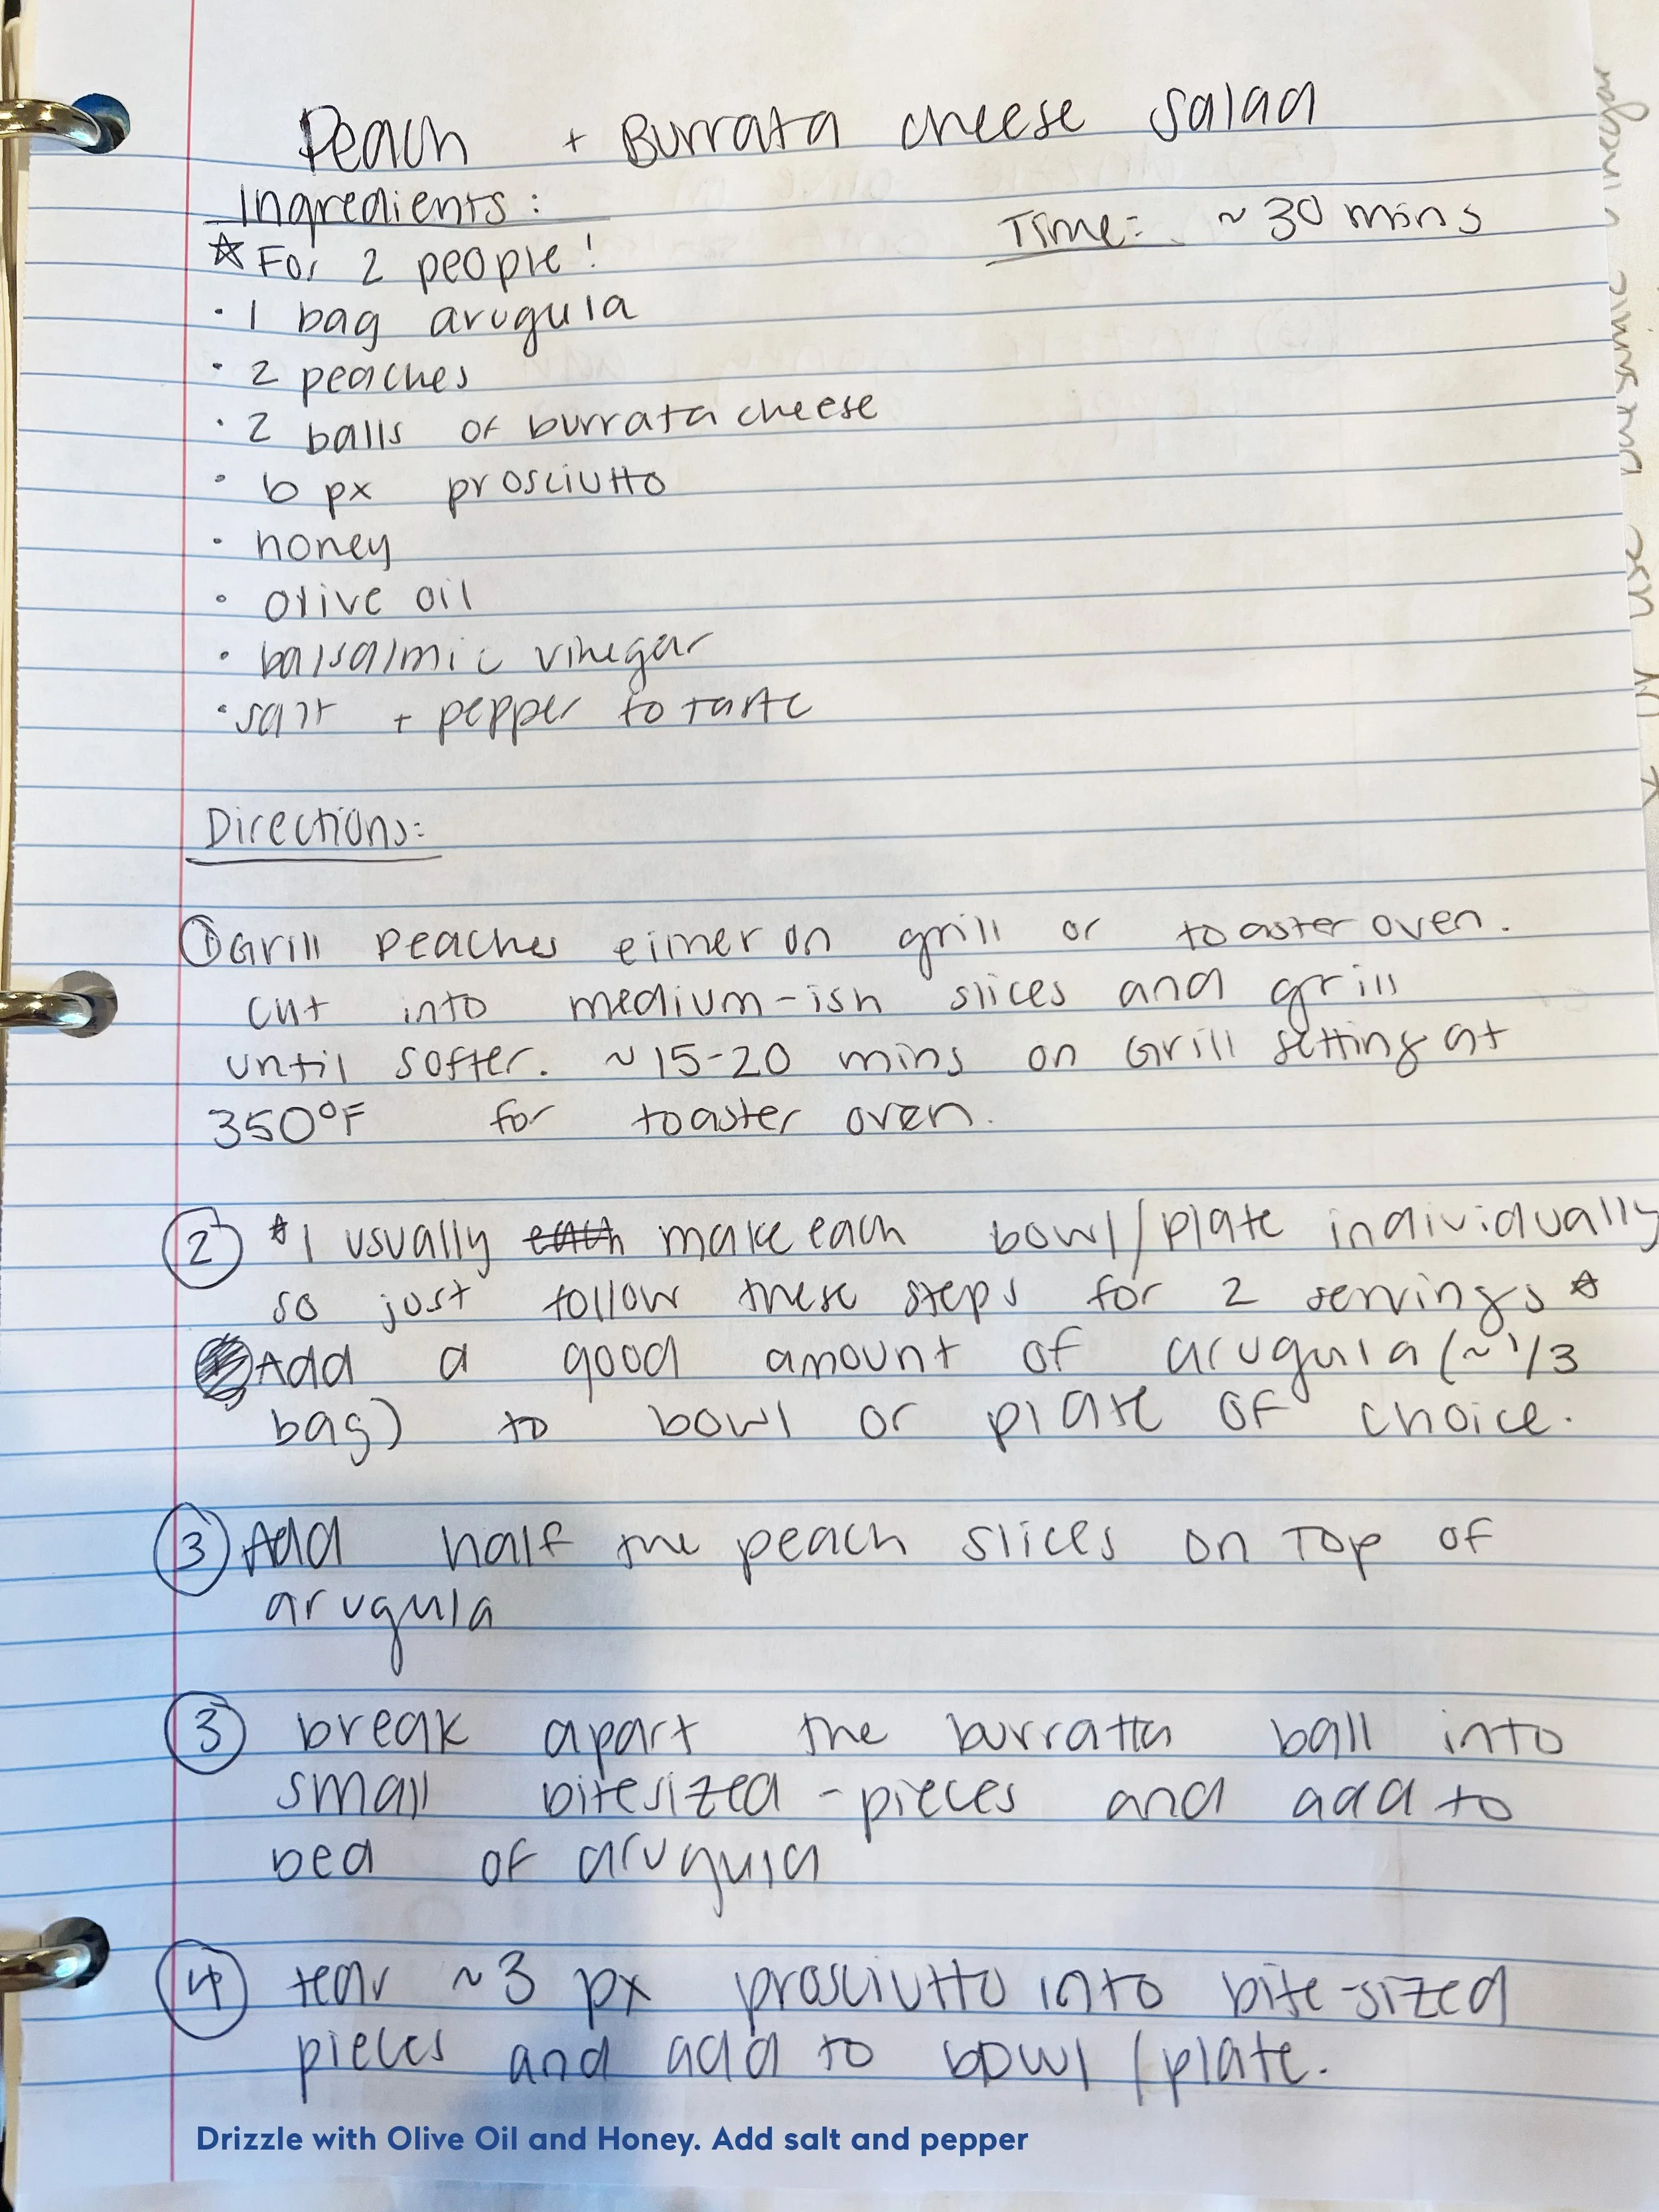 Peach + Burrata cheese salad
Ingredients:
Time: ~ 30 mins
☆ For 2 people!
· 1 bag arugula
· 2 peaches
· 2 balls of burrata cheese
· 6 px prosciutto
· honey
· olive oil
· balsalmic vinegar
· salt + pepper to taste
Directions:
① Grill peaches either on grill or toaster oven.
cut into medium-ish slices and grill
until softer. ~15-20 mins on Grill setting at
350°F for toaster oven.
② ☆I usually each make each bowl/plate individually
so just follow these steps for 2 servings ☆
Add a good amount of arugula (~1/3
bag) to bowl or plate of choice.
③ Add half the peach slices on top of
arugula
③ break apart the burratta ball into
small bitesized-pieces and add to
bed of arugula
④ tear ~3 px prosciutto into bite-sized
pieces and add to bowl/plate.
Drizzle with Olive Oil and Honey. Add salt and pepper
use balsamic vinegar